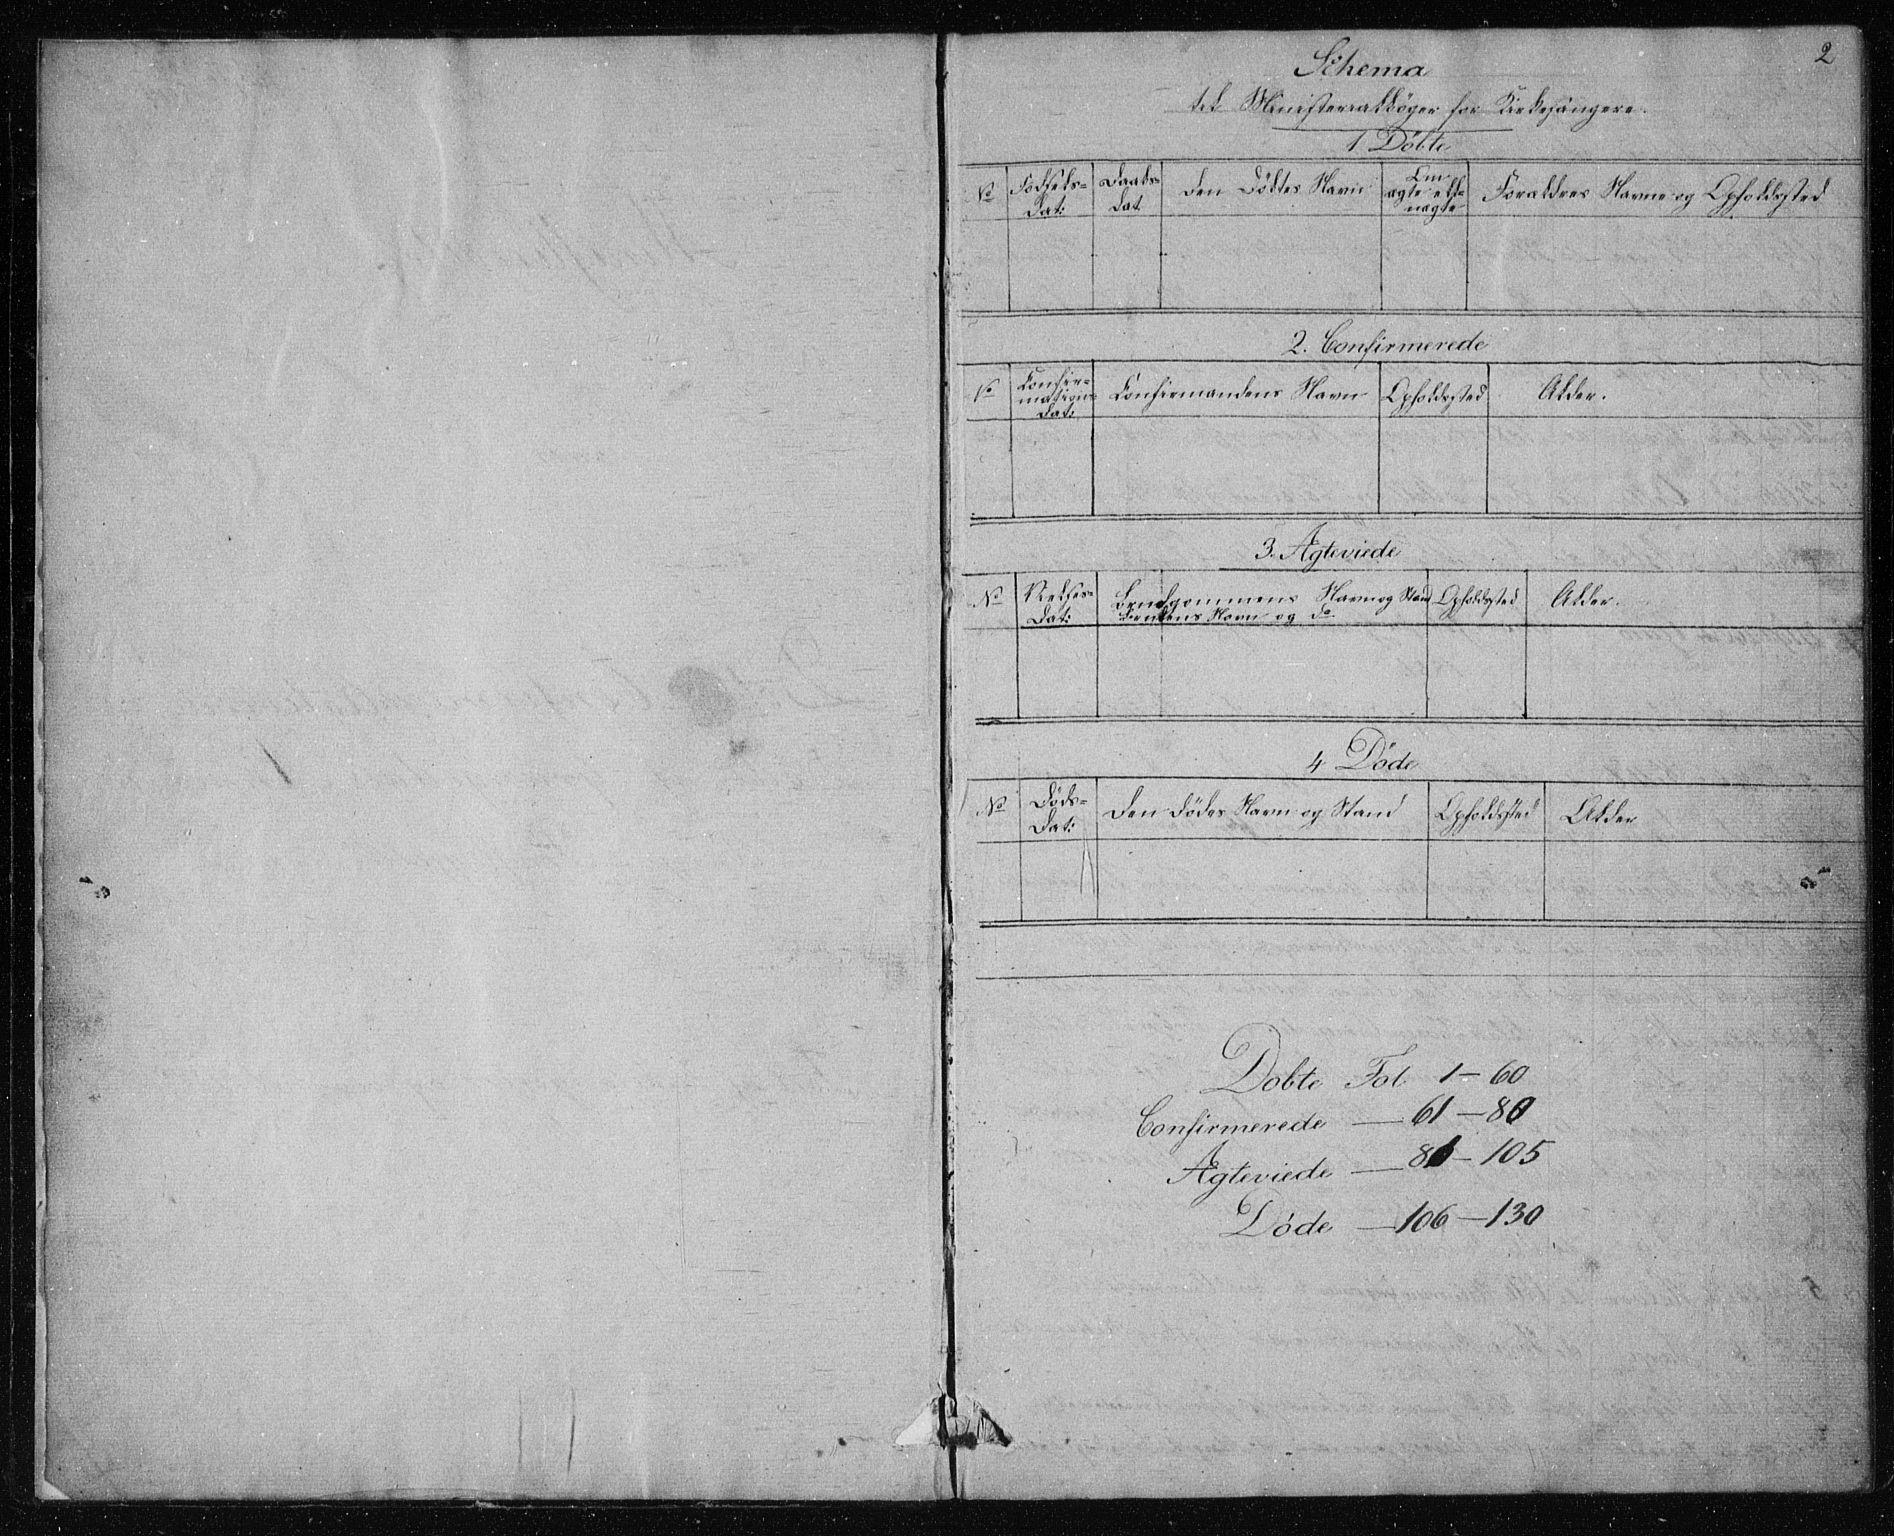 2
Schema
til Ministerialbøger for Kirkesangere.
1 Döbte
No Födsels- Dat: Daabs- Dat. Den Döbtes Navn Om ægte ell- uægte Forældres Navne og Opholdssted
2. Confirmerede
No Confir- mations Dat: Confirmandens Navn Opholdssted Alder.
3. Ægteviede
No Vielses- Dat: Brudgommens Navn og Stand Opholdssted Alder.
Brudens Navn og do
4 Döde
No Döds- Dat: Den Dödes Navn og Stand Opholdssted Alder
Dobte Fol 1-60
Confirmerede — 61-80
Ægteviede — 81-105
Döde — 106-130